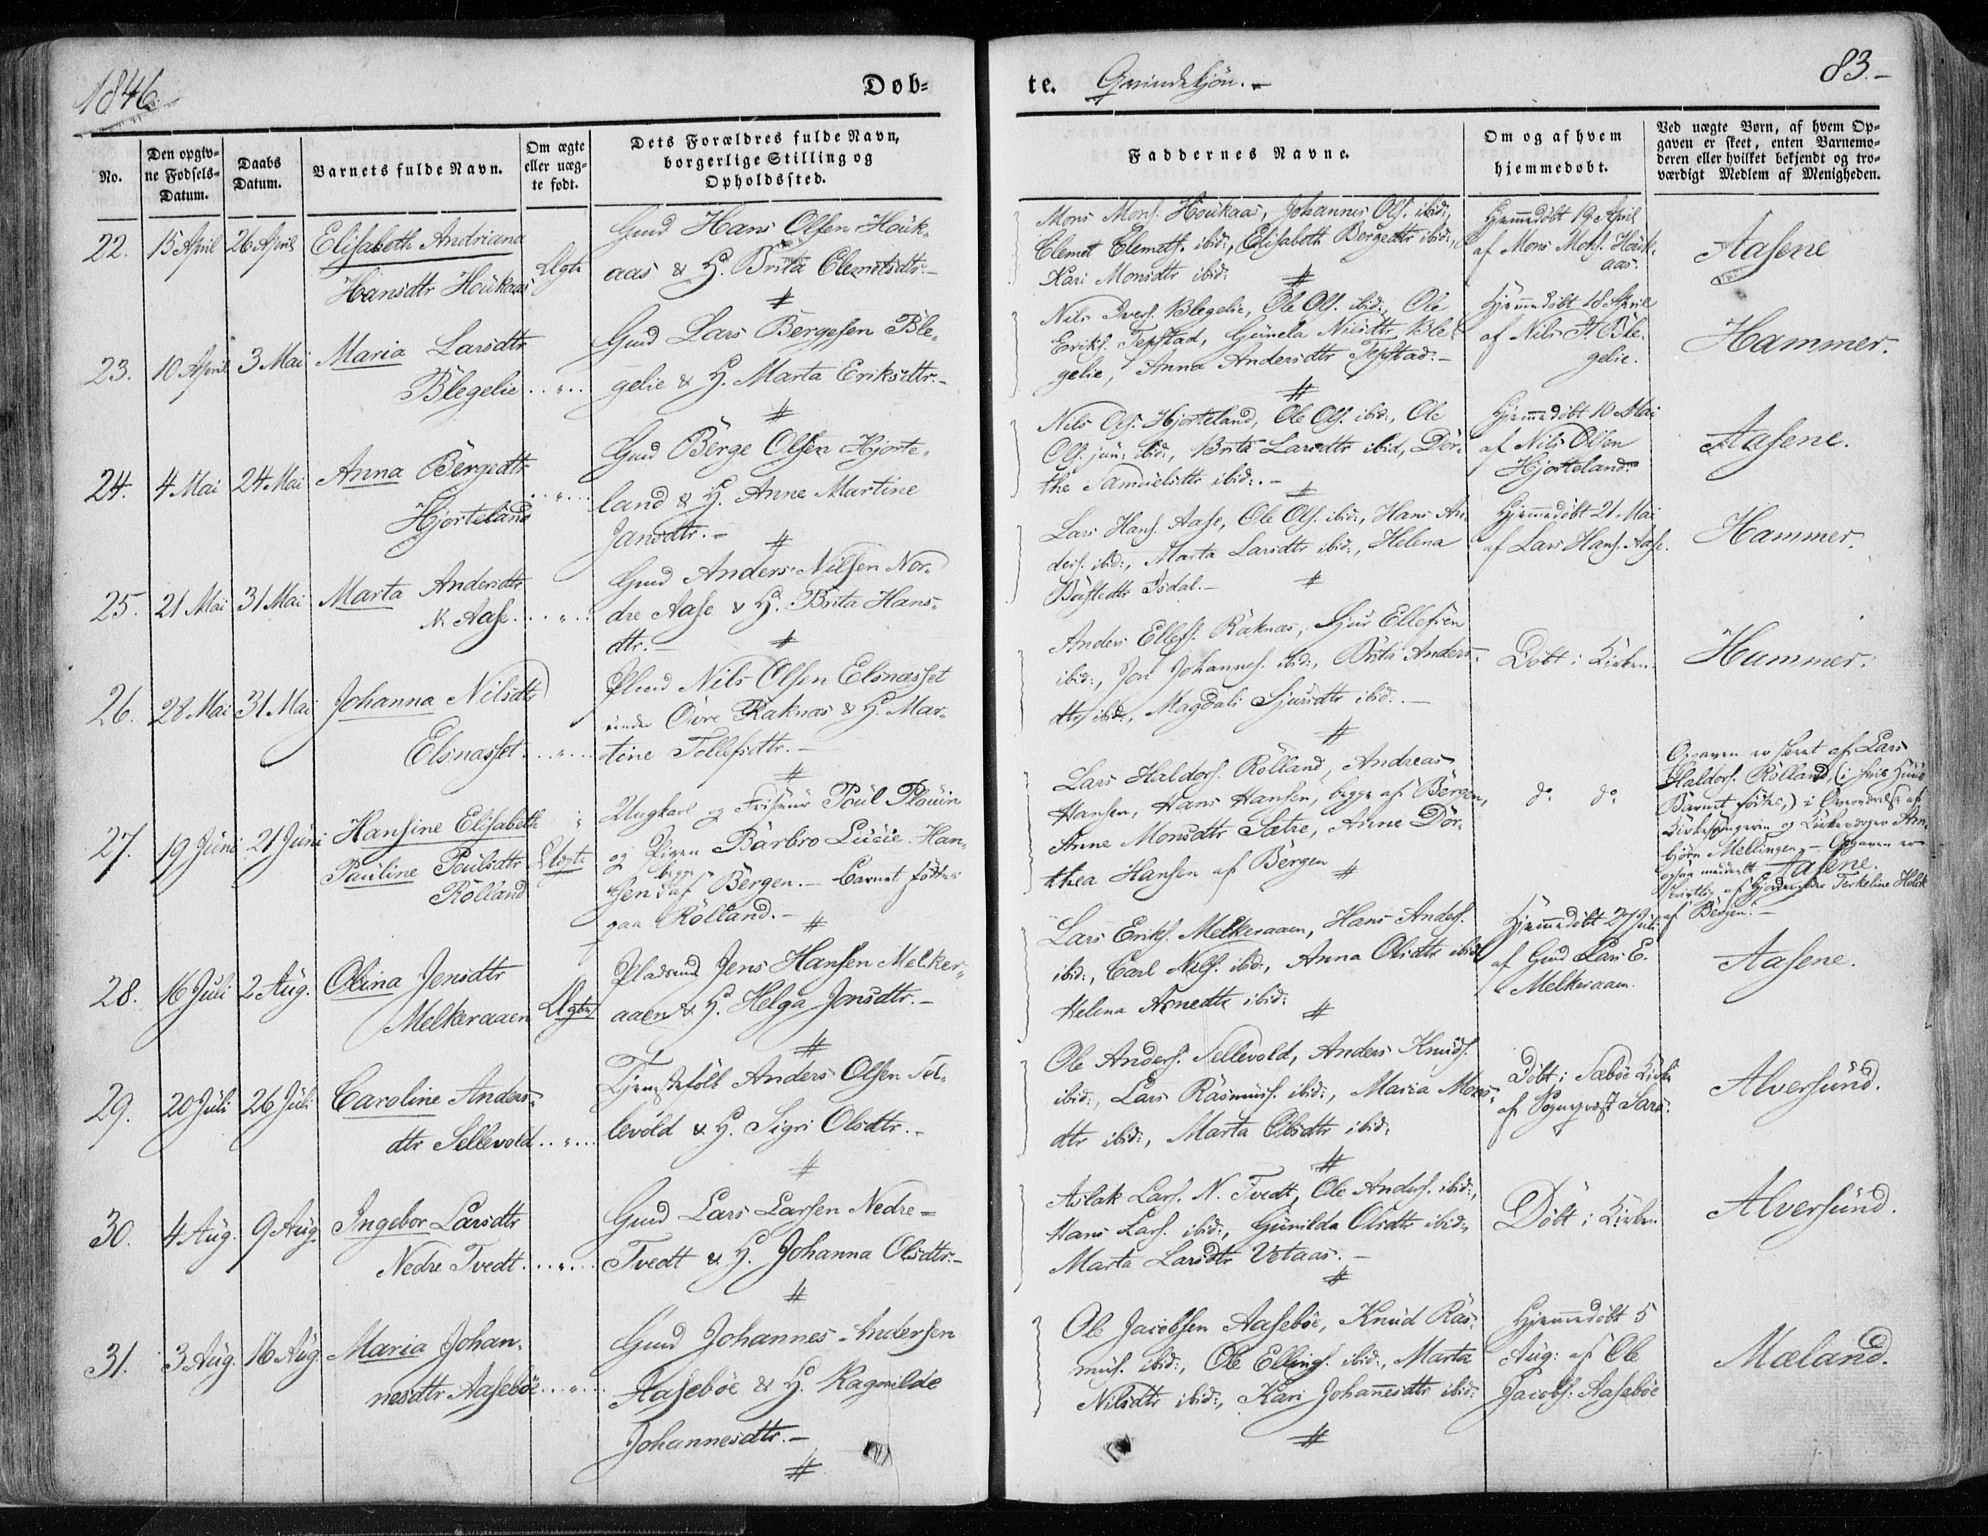 1846.
Døb-
te. Qvindekjøn.-
83.-
No.
Den opgiv-
ne Fødsels-
Datum.
Daabs
Datum.
Barnets fulde Navn.
Om ægte
eller uæg-
te født.
Dets Forældres fulde Navn,
borgerlige Stilling og
Opholdssted.
Faddernes Navne.
Om og af hvem
hjemmedøbt.
Ved uægte Børn, af hvem Op-
gaven er skeet, enten Barnemo-
deren eller hvilket bekjendt og tro-
værdigt Medlem af Menigheden.
22. 15 April 26 April Elisabeth Andriana
Hansdtr Houkaas
Ægte
Gmd Hans Olsen Houk-
aas & H. Brita Clemetsdtr.-
Mons Mons. Houkaas, Johannes Ols. ibid:,
Clemet Clemets. ibid:, Elisabeth Bergedtr ibid:,
Kari Monsdtr ibid:
Hjemmedøbt 19 April
af Mons Mons. Houk-
aas.
Aasene
23. 10 April 3 Mai Maria Larsdtr
Blegelie ..„..
Gmd Lars Bergesen Ble-
gelie & H. Marta Eriksdtr.-
Nils Ivers. Blegelie, Ole Ols. ibid:, Ole
Eriks. Tepstad, Gunela Nilsdtr Ble-
gelie, Anna Andersdtr Tepstad.-
Hjemmedøbt 18 April
af Nils I. Ble-
gelie.
Hammer.
24. 4 Mai 24 Mai Anna Bergedtr
Hjorteland ..„..
Gmd Berge Olsen Hjorte-
land & H. Anne Martine
Jansdtr.-
Nils Ols. Hjorteland, Ole Ols. ibid:, Ole
Ols. jun: ibid:, Brita Larsdtr ibid, Dor-
the Samuelsdtr ibid:.-
Hjemmedøbt 10 Mai
af Nils Olsen
Hjorteland.
Aasene.
25. 21 Mai 31 Mai Marta Andersdtr
N. Aase ..„..
Gmd Anders Nilsen Nor-
dre Aase & H. Brita Hans-
dtr.-
Lars Hans. Aase, Ole Ols. ibid:, Hans An-
ders. ibid:, Marta Larsdtr ibid:, Helena
Isdal.-
Hjemmedøbt 21 Mai
af Lars Hans. Aase.
Hammer.
26. 28 Mai 31 Mai Johanna Nilsdtr
Elsnæsset ..„..
Plmd Nils Olsen Elsnæsset
under Øvre Raknæs & H. Mar-
tine Tollefsdtr.-
Anders Ellefs. Raknæs, Sjur Ellefsen
ibid:, Jon Johannes. ibid:, Brita Anders-
dtr ibid:, Magdali Sjursdtr ibid:.-
Døbt i Kirken.
Hammer.
27. 19 Juni 21 Juni Hansine Elisabeth
Pauline Poulsdtr
Rølland
Uægte
Ungkarl og Friseur Poul Plouin
og Pigen Barbro Lucie Han-
sen begge af Bergen.- Barnet født
paa Rølland.-
Lars Haldors. Rølland, Andreas
Hansen, Hans Hansen, begge af Bergen,
Anne Monsdtr Sætre, Anne Dor-
thea Hansen af Bergen
do do
Opgaven er skeet af Lars
Haldors. Rølland, (i hvis Huus
Barnet fødtes,) i Overværelse af
Kirkesangeren og Kirkeværger
Mellingen.- Opgaven er
ogsaa meddelt Aasene.
af Gjordemoder Terkeline Holck
af Bergen.-
28. 16 Juli 2 Aug. Olina Jensdtr
Melkeraaen
Ægte
Pladsmd Jens Hansen Melker-
aaen & H. Helga Jonsdtr.-
Lars Eriks. Melkeraaen, Hans Anders.
ibid:, Carl Nils. ibid:, Anna Olsdtr ibid
Helena Arnedtr ibid:
Hjemmedøbt 27 Juli
af Gmd Lars E.
Melkeraaen.
Aasene.
29. 20 Juli 26 Juli Caroline Anders-
dtr Sellevold ..„..
Tjenestefolk Anders Olsen Sel-
levold & H. Sigri Olsdtr.-
Ole Anders. Sellevold, Anders Knuds.
ibid:, Lars Rasmuss. ibid:, Maria Mons-
dtr ibid:, Marta Olsdtr ibid:
Døbt i Sæbøe Kirke
af Sognepræst
Alversund.
30. 4 Aug. 9 Aug. Ingebor Larsdtr
Nedre Tvedt ..„..
Gmd Lars Larsen Nedre-
Tvedt & H. Johanna Olsdtr.-
Aslak Lars. N. Tvedt, Ole Anders. ibid:,
Hans Lars. ibid:, Gunilda Olsdtr ibid:,
Marta Larsdtr Vetaas.-
Døbt i Kirken
Alversund.
31. 3 Aug. 16 Aug. Maria Johan-
nesdtr Aasebøe ..„..
Gmd Johannes Andersen
Aasebøe & H. Ragnilde
Johannesdtr.-
Ole Jacobsen Aasebøe, Knud Ras-
mus. ibid:, Ole Ellings. ibid:, Marta
Nilsdtr ibid:, Kari Johannesdtr ibid:
Hjemmedøbt 5
Aug: af Ole
Jacobs: Aasebøe
Mæland.